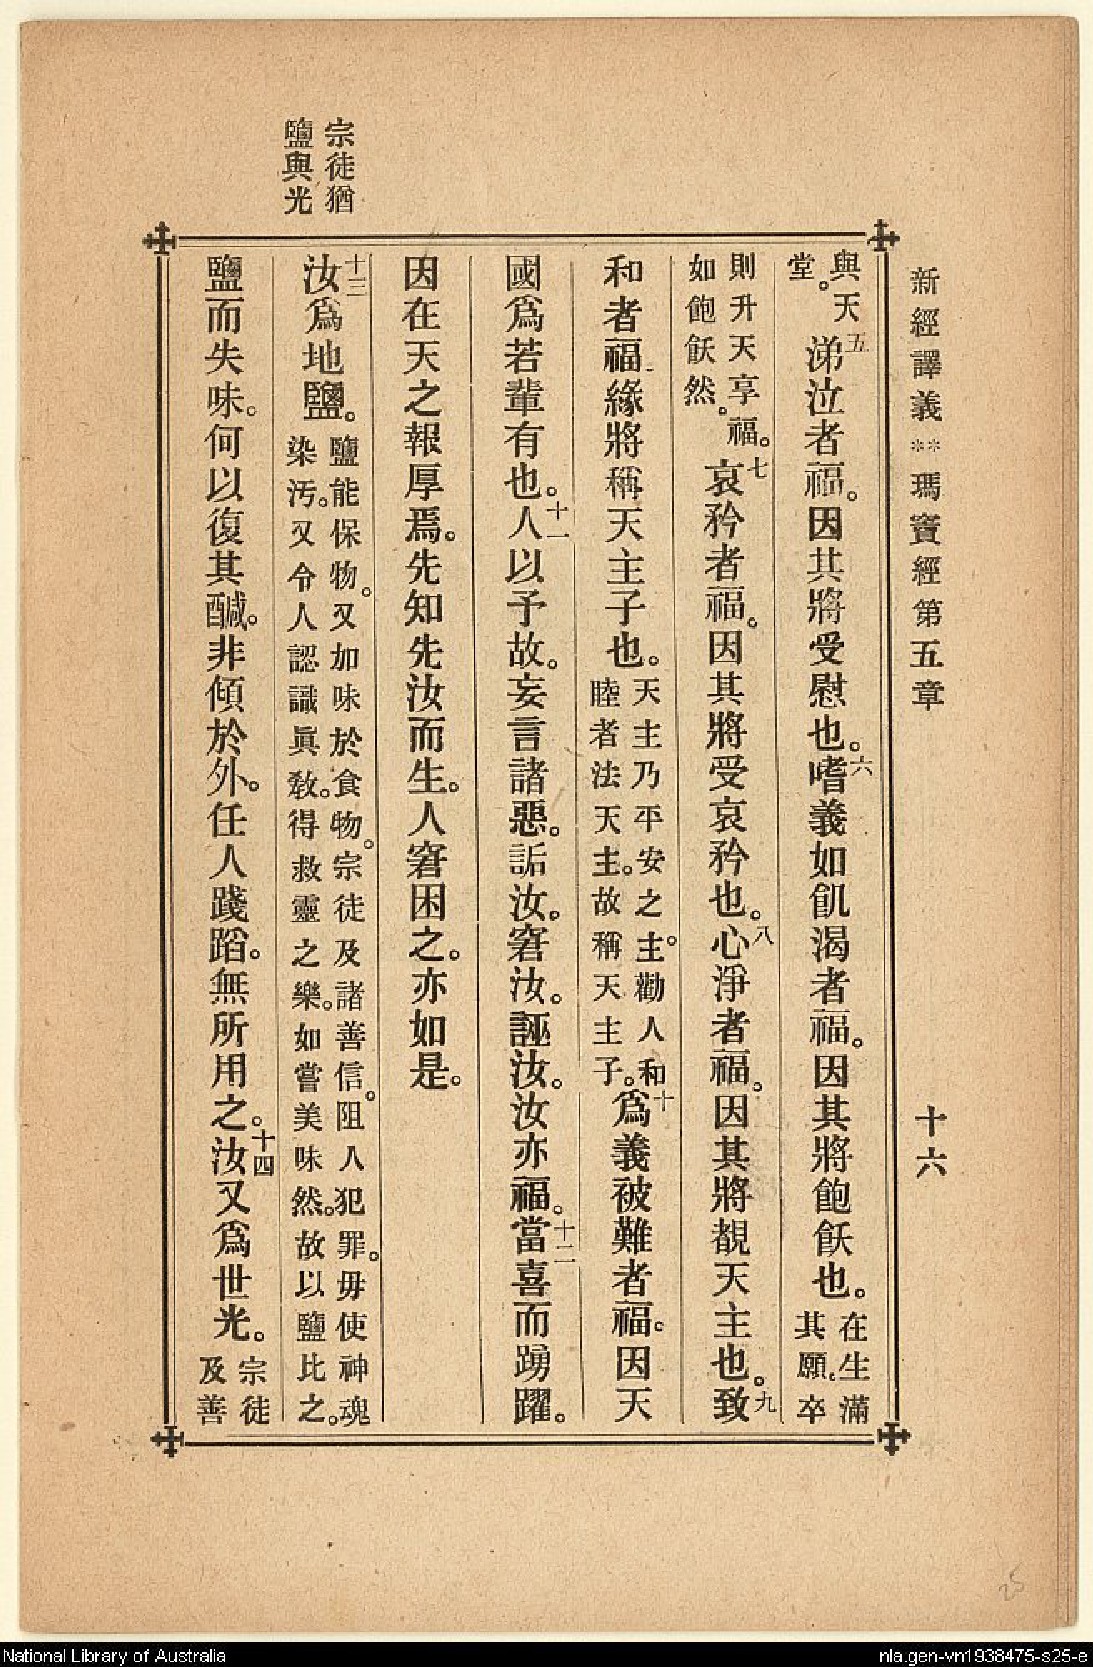 新經譯義 ** 瑪竇經第五章 十六
與天
堂。
五涕泣者福。因其將受慰也。六嗜義如飢渴者福。因其將飽飫也。
在生滿
其願。卒
則升天享福。
如飽飫然。
七哀矜者福。因其將受哀矜也。八心淨者福。因其將覩天主也。九致
和者福緣將稱天主子也。
天主乃平安之主。勸人和
睦者法天主。故稱天主子。
十爲義被難者福。因天
國爲若輩有也。十一人以予故。妄言諸惡。詬汝。窘汝。誣汝。汝亦福。十二當喜而踴躍。
因在天之報厚焉。先知先汝而生。人窘困之。亦如是。
宗徒猶
鹽與光
十三汝爲地鹽。
鹽能保物。又加味於食物。宗徒及諸善信。阻人犯罪。毋使神魂
染汚。又令人認識眞敎。得救靈之樂。如嘗美味然。故以鹽比之。
鹽而失味。何以復其鹹。非傾於外。任人踐蹈。無所用之。十四汝又爲世光。
宗徒
及善
25
National Library of Australia
nla.gen-vn1938475-s25-e